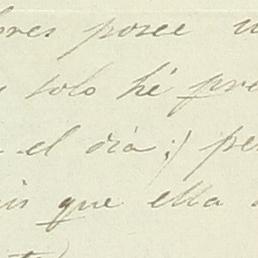 bres posee
solo hé pre
el dia;) pe
is que ella